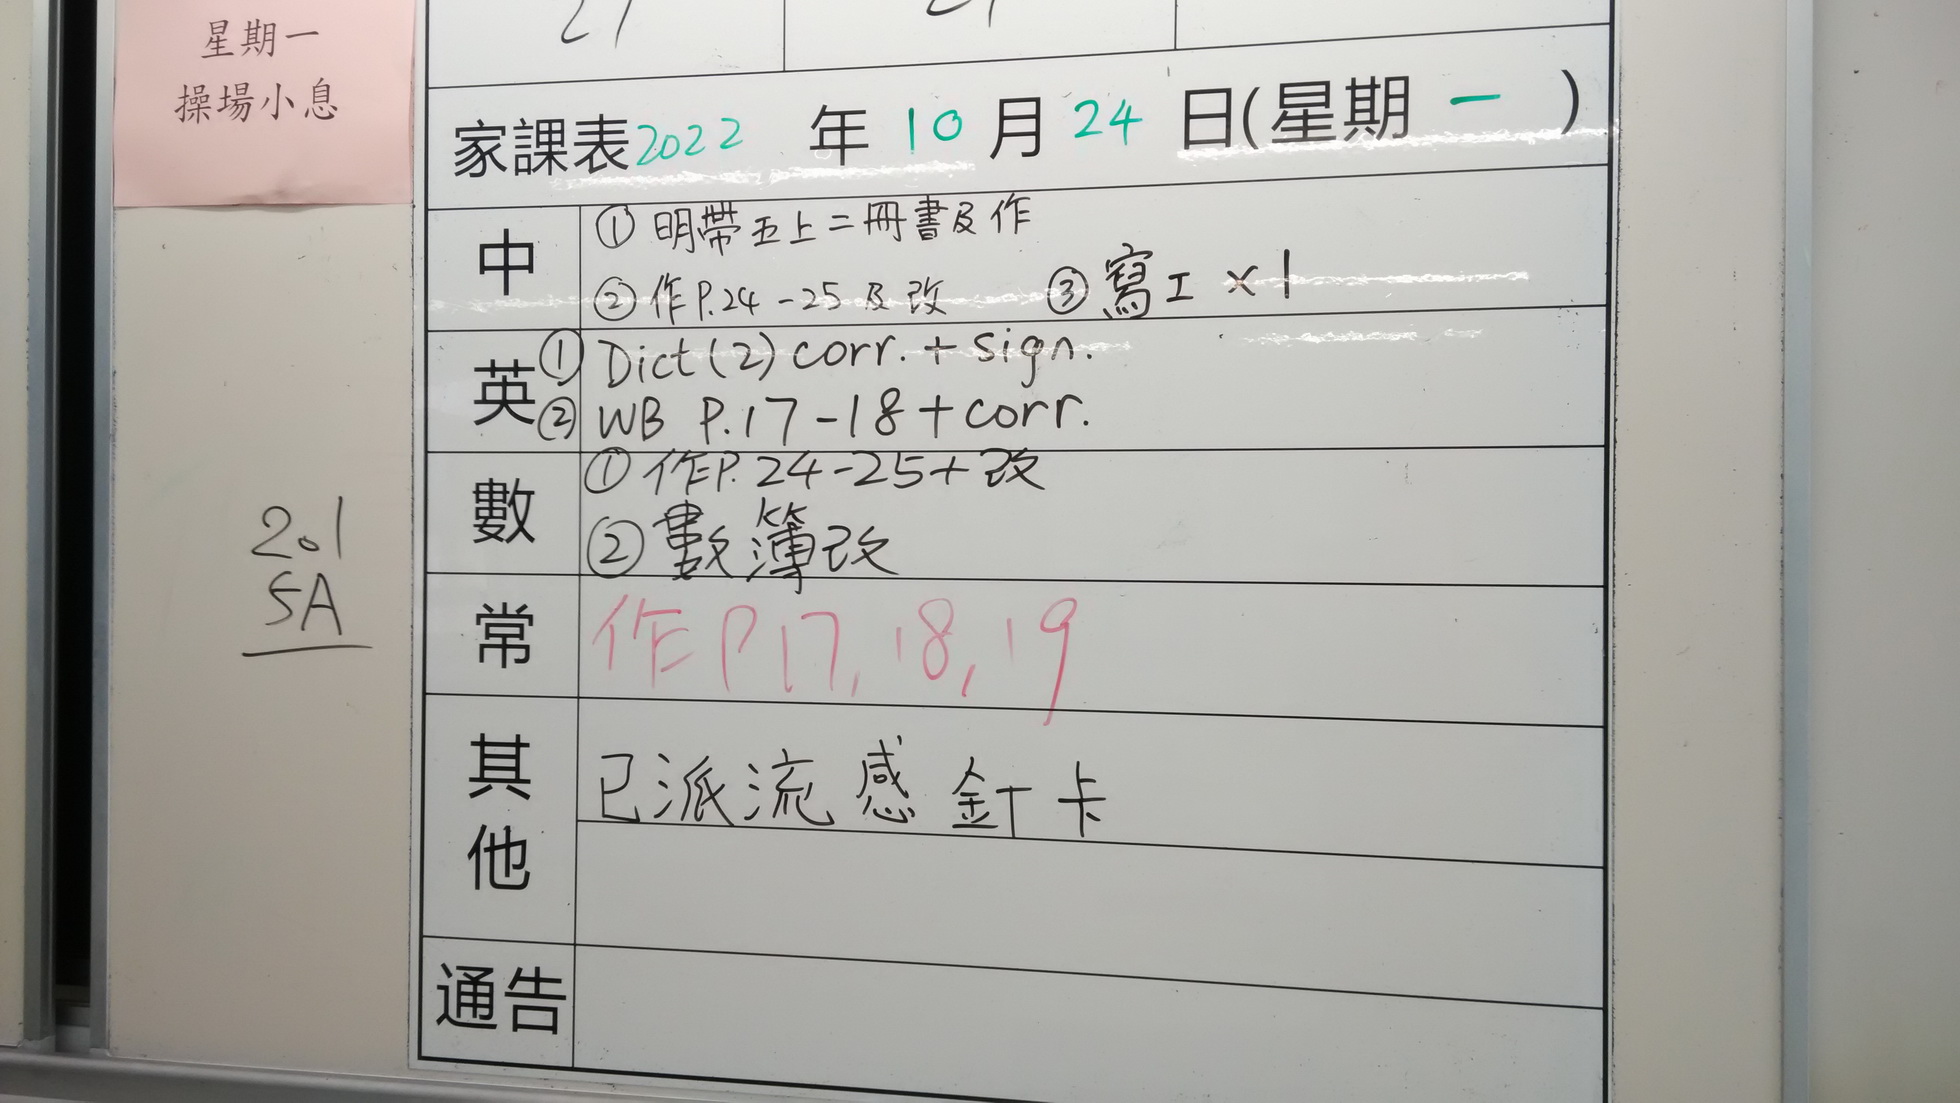 星期一
操場小息
家課表2022 年 10 月 24 日(星期 一 )
中
① 明帶五上二冊書及作
② 作P.24-25及改 ③ 寫工 x 1
英
① Dict(2) corr. + sign.
② WB P.17-18 + corr.
數
① 作P.24-25+改
② 數簿改
常
作P17, 18, 19
其他
已派流感針卡
通告
2.1
5A